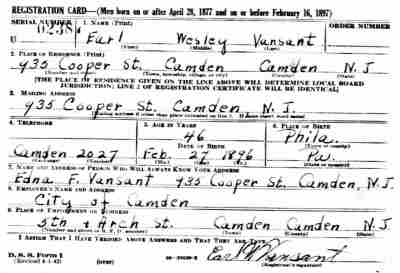 REGISTRATION CARD—(Men born on or after April 28, 1877 and on or before February 16, 1897)
SERIAL NUMBER 1. NAME (Print) ORDER NUMBER
U Earl Wesley Vansant
(First) (Middle) (Last)
2. PLACE OF RESIDENCE (Print)
435 Cooper St. Camden Camden N.J.
(Number and street) (Town, township, village, or city) (County) (State)
[THE PLACE OF RESIDENCE GIVEN ON THE LINE ABOVE WILL DETERMINE LOCAL BOARD
JURISDICTION; LINE 2 OF REGISTRATION CERTIFICATE WILL BE IDENTICAL]
3. MAILING ADDRESS
435 Cooper St. Camden, N.J.
[Mailing address if other than place indicated on line 2. If same insert word same]
4. TELEPHONE 5. AGE IN YEARS 6. PLACE OF BIRTH
46 Phila.
DATE OF BIRTH (Town or county)
Camden 2027 Feb. 27 1896 Pa.
(Exchange) (Number) (Mo.) (Day) (Yr.) (State or country)
7. NAME AND ADDRESS OF PERSON WHO WILL ALWAYS KNOW YOUR ADDRESS
Edna F. Vansant 435 Cooper St. Camden, N.J.
8. EMPLOYER'S NAME AND ADDRESS
City of Camden
9. PLACE OF EMPLOYMENT OR BUSINESS
5th & Arch St. Camden Camden N.J.
(Number and street or R. F. D. number) (Town) (County) (State)
I AFFIRM THAT I HAVE VERIFIED ABOVE ANSWERS AND THAT THEY ARE TRUE.
D. S. S. Form 1 Earl W Vansant
(Revised 4-1-42) (over) (Registrant's signature)